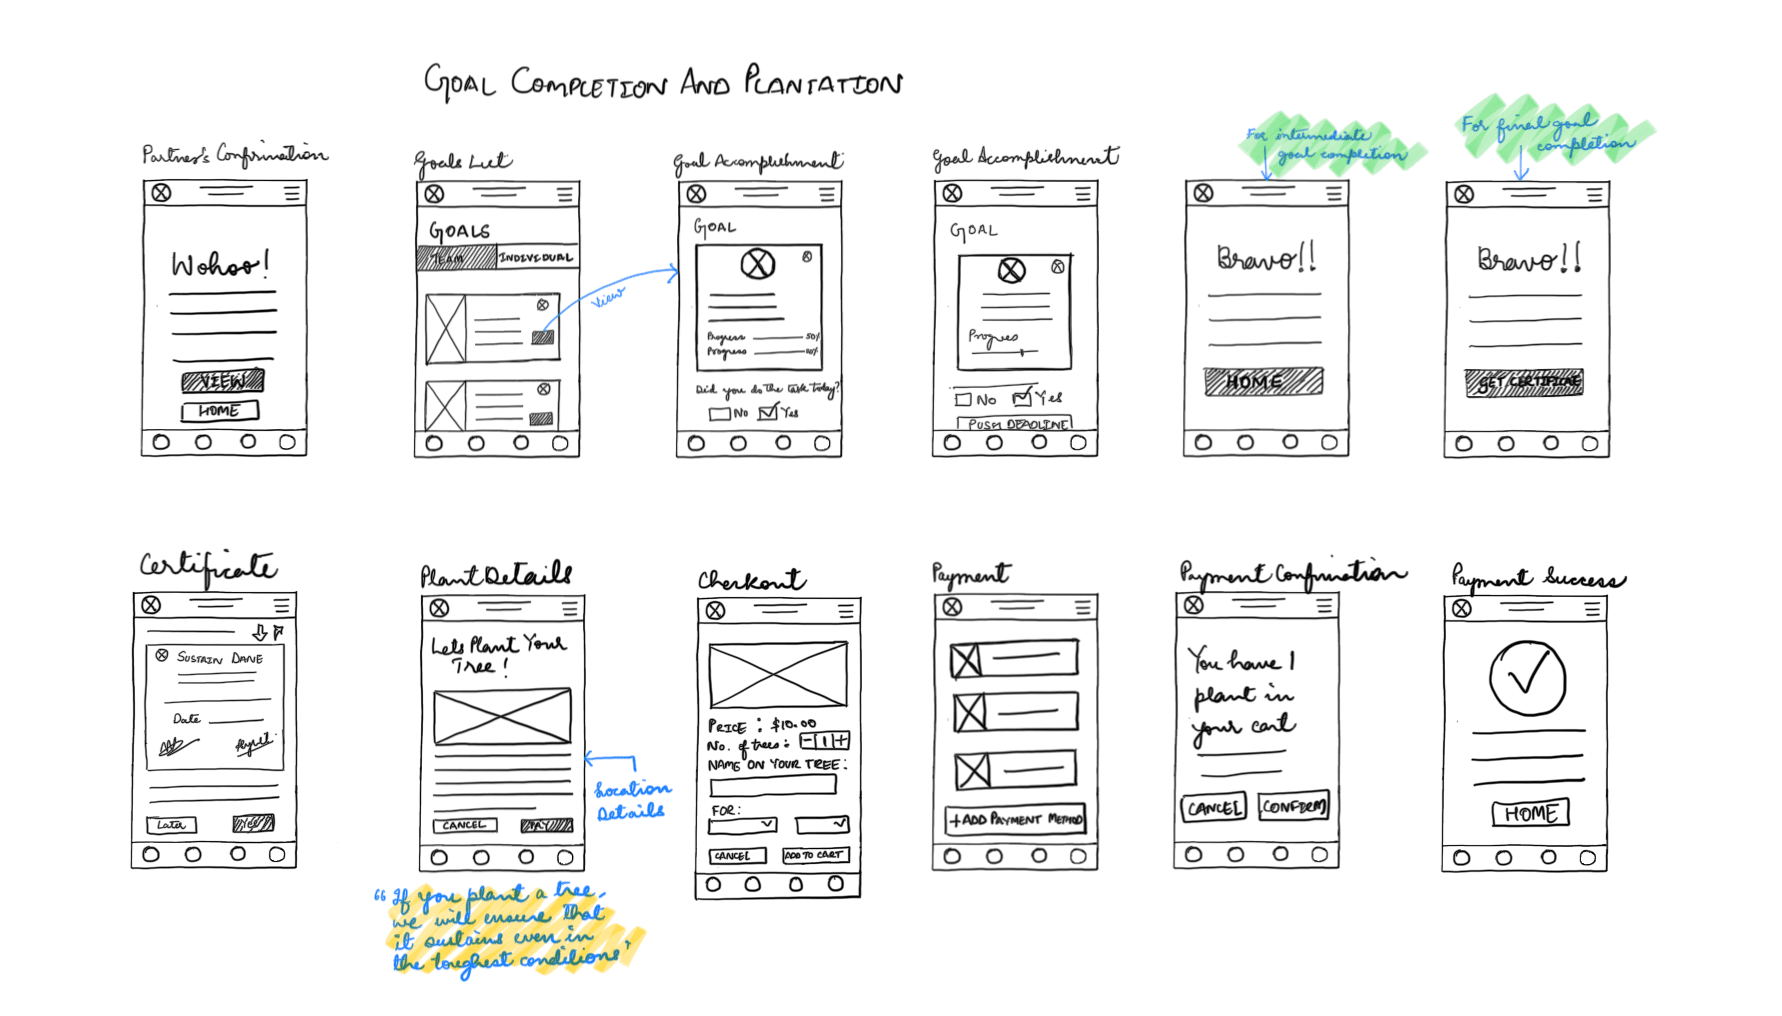 GOAL COMPLETION AND PLANTATION
Partner's Confirmation
Wohoo!
VIEW
HOME
Goals List
GOALS
TEAM
INDIVIDUAL
View
Goal Accomplishment
GOAL
Progress 50%
Progress
Did you do the task today?
No Yes
Goal Accomplishment
GOAL
Progres
No Yes
PUSH DEADLINE
For intermediate
goal completion
Bravo!!
HOME
For final goal
completion
Bravo!!
GET CERTIFICATE
Certificate
SUSTAIN DANE
Date
Later
YES
Plant Details
Lets Plant Your
Tree!
CANCEL
PAY
Location
Details
“If you plant a tree,
we will ensure that
it sustains even in
the toughest conditions”
Checkout
PRICE : $10.00
No. of trees : - 1 +
NAME ON YOUR TREE :
FOR:
CANCEL
ADD TO CART
Payment
+ ADD PAYMENT METHOD
Payment Confirmation
You have 1
plant in
your cart
CANCEL
CONFIRM
Payment Success
HOME